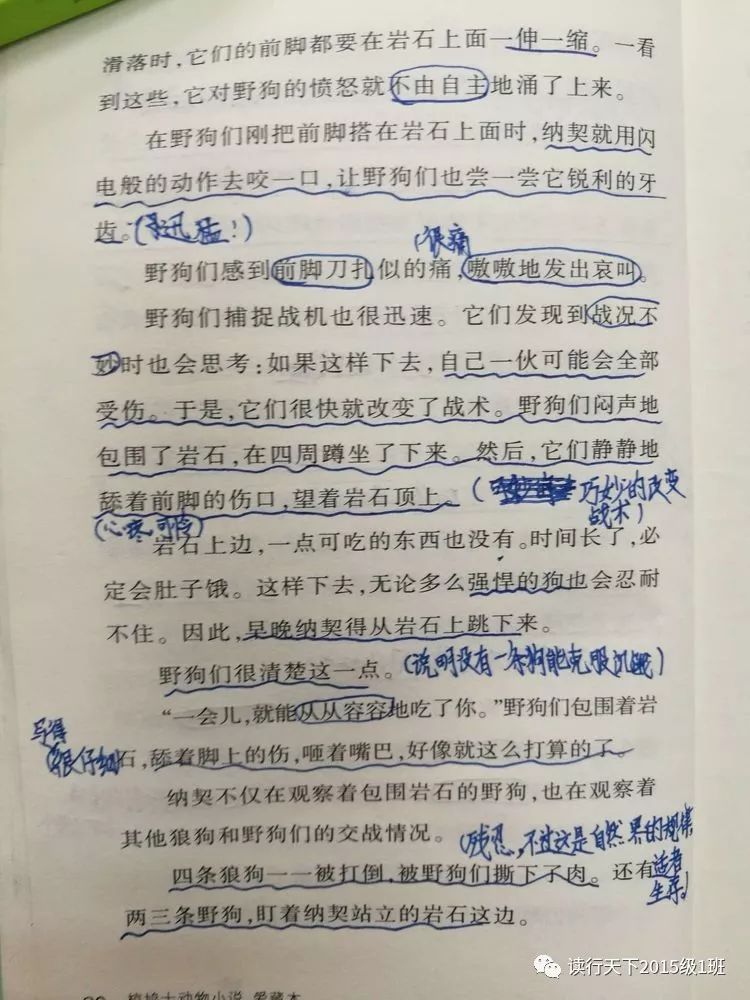 滑落时，它们的前脚都要在岩石上面一伸一缩。一看
到这些，它对野狗的愤怒就不由自主地涌了上来。
在野狗们刚把前脚搭在岩石上面时，纳契就用闪
电般的动作去咬一口，让野狗们也尝一尝它锐利的牙
齿。
迅猛！)
(很痛
野狗们感到前脚刀扎似的痛，嗷嗷地发出哀叫。
野狗们捕捉战机也很迅速。它们发现到战况不
妙时也会思考：如果这样下去，自己一伙可能会全部
受伤。于是，它们很快就改变了战术。野狗们闷声地
包围了岩石，在四周蹲坐了下来。然后，它们静静地
舔着前脚的伤口，望着岩石顶上。
(巧妙的改变
战术)
(心疼
岩石上边，一点可吃的东西也没有。时间长了，必
定会肚子饿。这样下去，无论多么强悍的狗也会忍耐
不住。因此，早晚纳契得从岩石上跳下来。
野狗们很清楚这一点。(说明没有一条狗能克服饥饿)
“一会儿，就能从从容容地吃了你。”野狗们包围着岩
写得
很仔细)
石，舔着脚上的伤，咂着嘴巴，好像就这么打算的了。
纳契不仅在观察着包围岩石的野狗，也在观察着
其他狼狗和野狗们的交战情况。
(残忍，不过这是自然界的规律，
适者
生存)
四条狼狗一一被打倒，被野狗们撕下了肉。还有
两三条野狗，盯着纳契站立的岩石这边。
椋鸠十动物小说 爱藏本
读行天下2015级1班